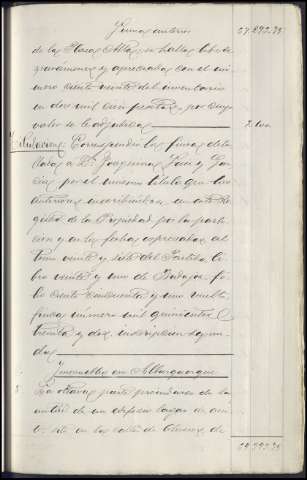 Suma anterior 67.292.75
de las Casas Altas se halla libre de
gravámenes y apreciada con el nú-
mero ciento veinte del inventario
en dos mil cien pesetas, por cuyo
valor se le adjudica 2.100
Titulacion: Corresponden las fincas deta-
lladas a Dª Joaquina
por el mismo titulo que las
anteriores inscribiendose en este Re-
gistro de la Propiedad por la parti-
cion y en las fechas expresadas al
tomo veinte y siete del Partido, li-
bro veinte y uno de Badajoz, fo-
lio ciento cincuenta y uno vuelto,
finca número mil quinientos
treinta y dos, inscripcion segun-
da.
Inmuebles en Alburquerque
La octava parte proindiviso de la
mitad de un edificio lagar de acei-
te sito en la calle de de